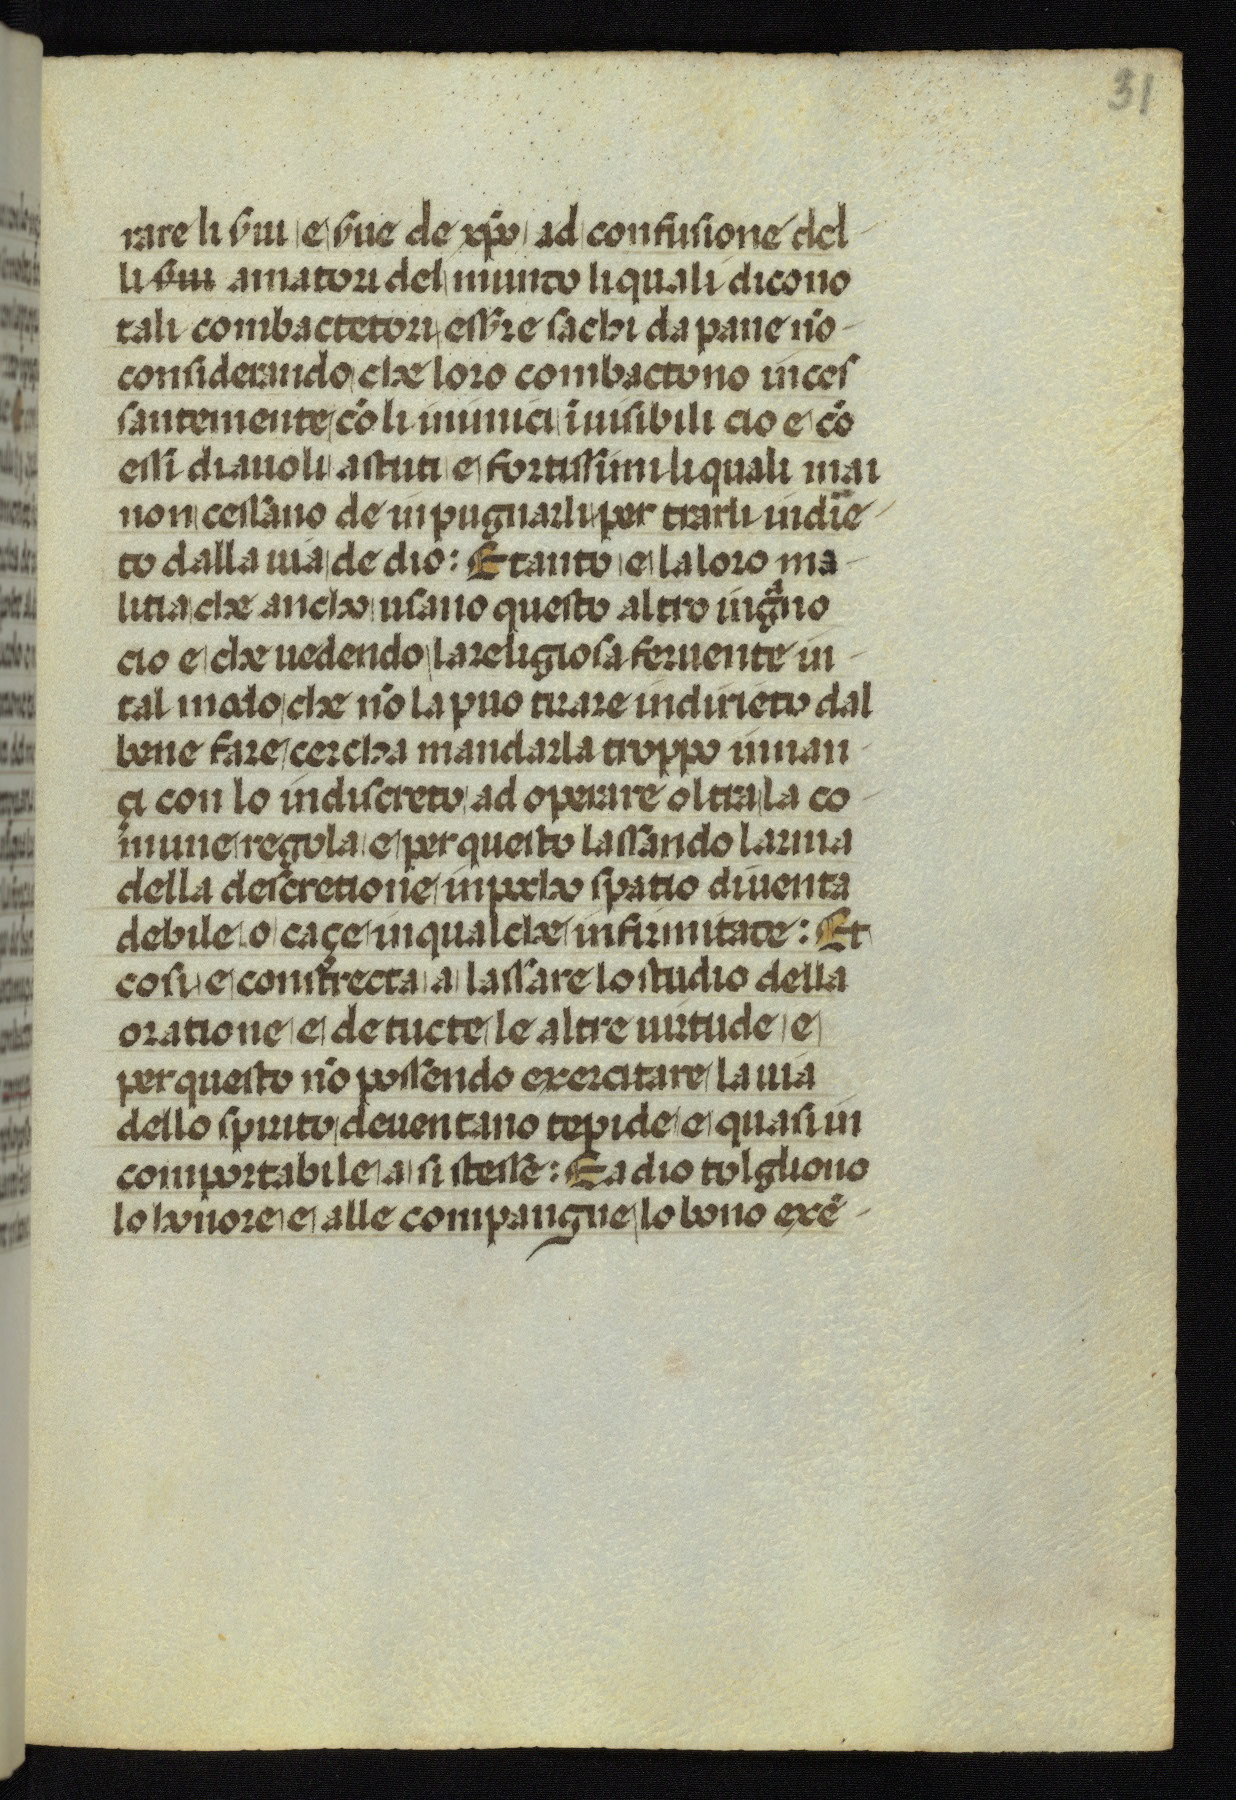 31
rare li s̄ui e s̄ue de xp̄o ad confusione del
li s̄ui amatori del munto li quali dicono
tali combactetori ess̄re sachi da pane nō
considerando che loro combactono inces
santemente cō li inimici īuisibili cio e cō
essi diauoli astuti e fortissimi li quali mai
non cessano de inpugnarli per trarli indie
to dalla uia de dio: Et tanto e la loro ma
litia che ancho usano questo altro ingāno
cio e che uedendo la religiosa feruente in
tal modo che nō la puo tirare indirieto dal
bene fare cercha mandarla troppo innan
çi con lo indiscreto ad operare oltra la co
mune regola e per questo lassando larma
della descretione in pocho spatio diuenta
debile o caçe in qualche infirmitate: Et
cosi e constrecta a lassare lo studio della
oratione e de tucte le altre uirtude e
per questo nō possendo exercitare la uia
dello spirito deuentano tepide e quasi in
comportabile a si stesse: E a dio tolgliono
lo honore e alle compangne lo bono exē